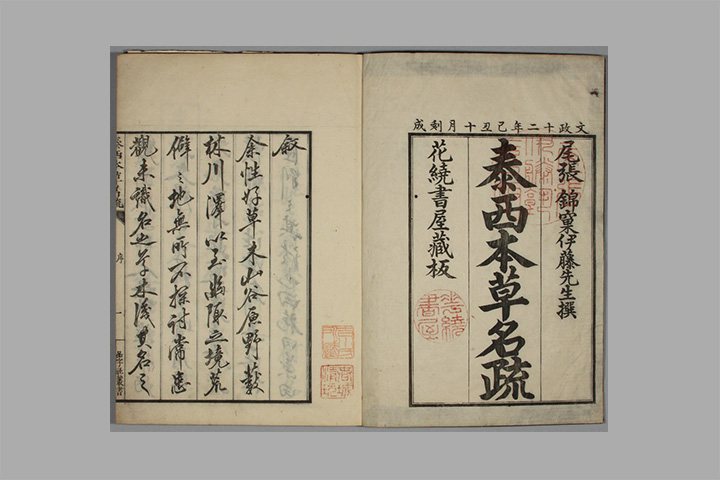 文政十二年己丑十月刻成
尾張 錦窠伊藤先生撰
泰西本草名疏
花繞書屋藏板
花繞書屋
敘
余性好草木山谷原野藪
林川澤以至幽陬之境荒
僻之地無所不探討常患
觀未識名之草木後其名之
泰西本草名疏 序 一